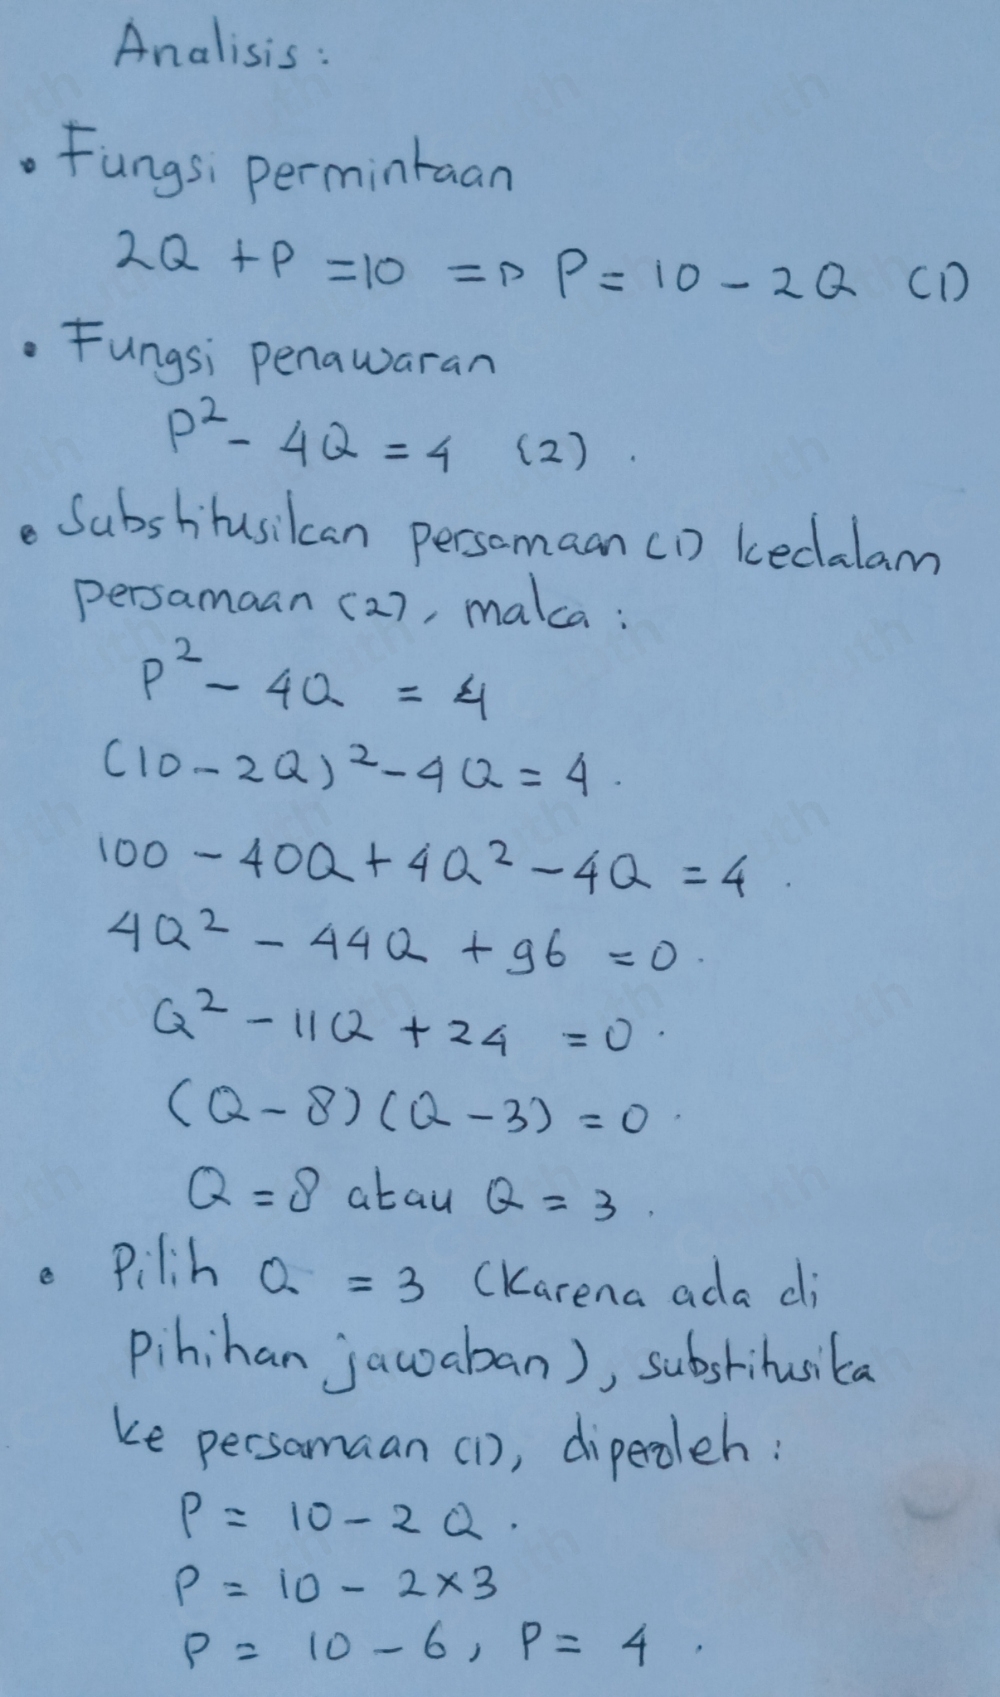 Analisis :
• Fungsi permintaan
2Q + P = 10 => P = 10 - 2Q (1)
• Fungsi penawaran
P² - 4Q = 4 (2) .
• Substitusikan persamaan (1) kedalam
persamaan (2), maka :
P² - 4Q = 4
(10 - 2Q)² - 4Q = 4 .
100 - 40Q + 4Q² - 4Q = 4 .
4Q² - 44Q + 96 = 0 .
Q² - 11Q + 24 = 0 .
(Q - 8) (Q - 3) = 0 .
Q = 8 atau Q = 3 .
• Pilih Q = 3 (Karena ada di
pihihan jawaban), substitusika
ke persamaan (1), diperoleh :
P = 10 - 2Q .
P = 10 - 2 x 3
P = 10 - 6, P = 4 .